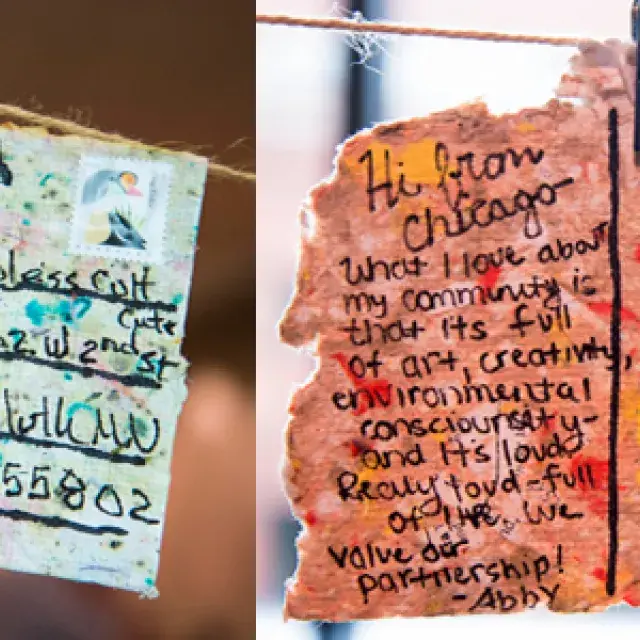 less Cutt
Cute
W 2nd St
MN
55802
Hi from
Chicago-
What I love about
my community is
that its full
of art, creativity,
environmental
consciousity-
and it's loud.
Really loud-full
of life. We
value our
partnership!
- Abby